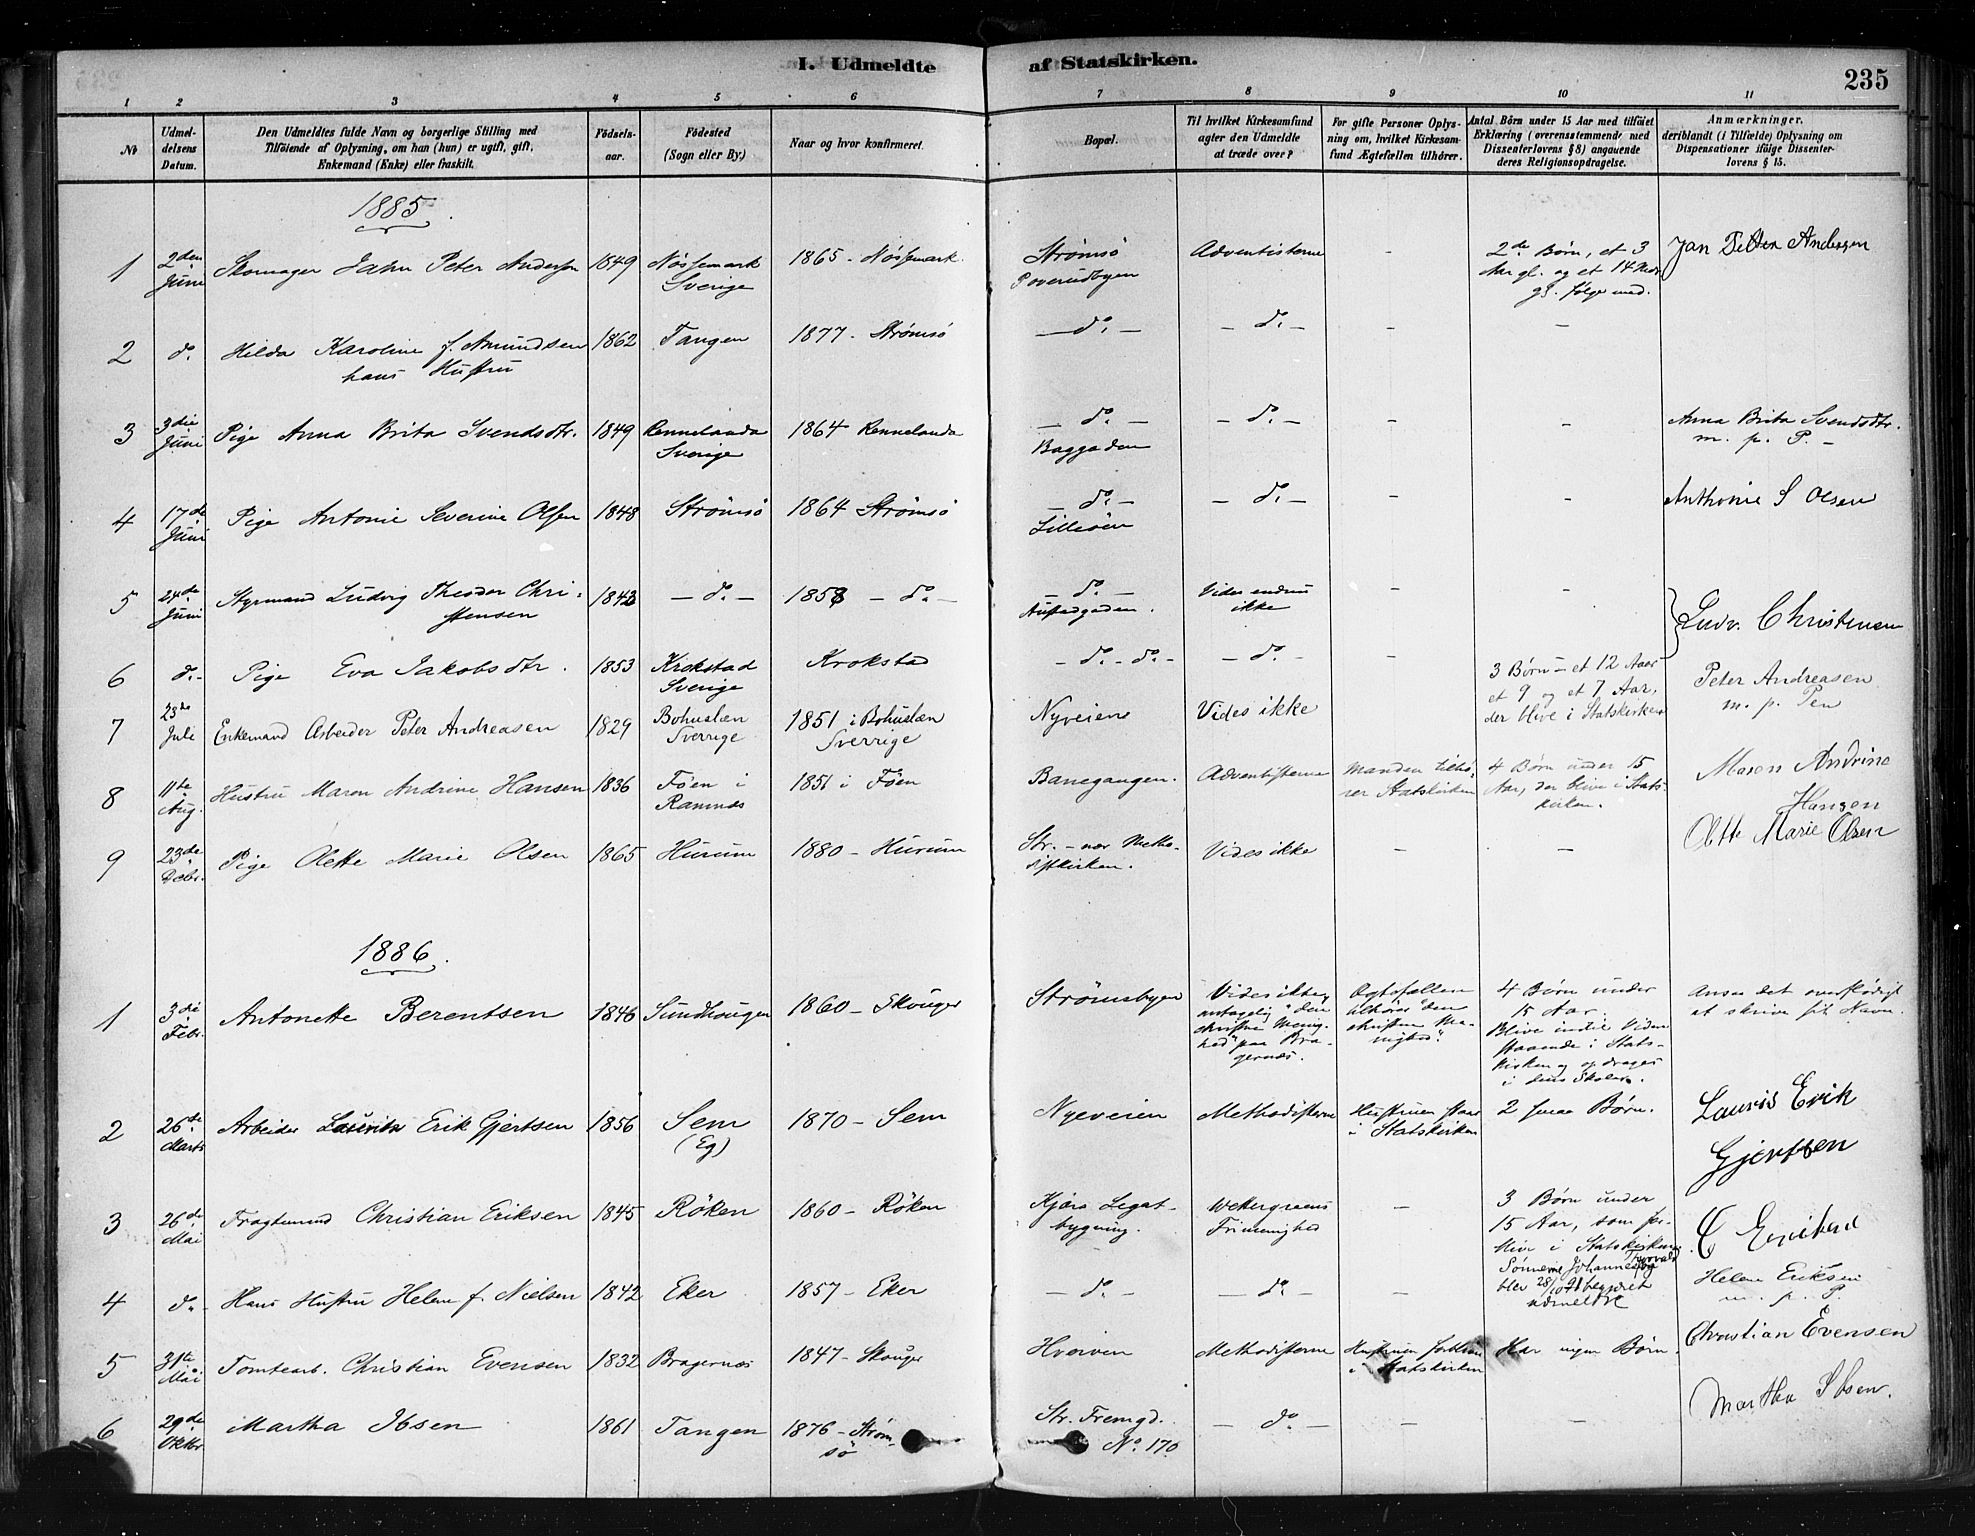 I. Udmeldte af Statskirken.
235
1 2 3 4 5 6 7 8 9 10 11
No
Udmel-
delsens
Datum.
Den Udmeldtes fulde Navn og borgerlige Stilling med
Tilføiende af Oplysning, om han (hun) er ugift, gift,
Enkemand (Enke) eller fraskilt.
Fødsels-
aar.
Fødested
(Sogn eller By.)
Naar og hvor konfirmeret.
Bopæl.
Til hvilket Kirkesamfund
agter den Udmeldte
at træde over?
For gifte Personer Oplys-
ning om, hvilket Kirkesam-
fund Ægtefællen tilhører.
Antal Børn under 15 Aar med tilføiet
Erklæring (overensstemmende med
Dissenterlovens § 8) angaaende
deres Religionsopdragelse.
Anmærkninger,
deriblandt (i Tilfælde) Oplysning om
Dispensationer ifølge Dissenter-
lovens § 15.
1885.
1 2den Juni Skomager Jahn Peter Anderson 1849 Nössemark Sverige 1865 - Nössemark. Strømsø Poverudbyen Adventisterne - 2de Børn, et 3 Aar gl. og et 14 Mdr gl. følge med. Jan Petter Andersen
2 do. Hilda Karoline f. Amundsen hans Hustru 1862 Tangen 1877 - Strømsø - do. - - do. - - -
3 3die Juni Pige Anna Brita Svendsdtr. 1849 Rennelanda Sverige 1864 Rennelanda - do. - Baggaden - do. - - - Anna Brita Svendsdtr. m. p. P. -
4 17de Juni Pige Antonie Severine Olsen 1848 Strømsø 1864 Strømsø - do. - Lilleöen - do. - - - Anthonie S Olsen
5 24de Juni Styrmand Ludvig Theodor Christensen 1843 - do. - 1858 - do. - - do. - Austadgaden. Vides endnu ikke - - Ludv. Christensen
6 do. - Pige Eva Jakobsdtr. 1853 Krokstad Sverige Krokstad - do. - do. - - do. - -
7 23de Juli Enkemand Arbeider Peter Andreasen 1829 Bohuslæn Sverrige 1851 i Bohuslæn Sverrige Nyveiene Vides ikke 3 Børn - et 12 Aar et 9 og et 7 Aar, der blive i Statskirken Peter Andreasen m. p. Pen
8 11te Aug. Hustru Maren Andrine Hansen 1836 Föen i Ramnes 1851 i Föen Banegangen. Adventisterne Manden tilhører Statskirken 4 Børn under 15 Aar, der blive i Statskirken. Maren Andrine Hansen
9 23de Decbr. Pige Olette Marie Olsen 1865 Hurum 1880 - Hurum Str. - nær Methodistkirken. Vides ikke - - Olette Marie Olsen
1886.
1 3die Febr. Antonette Berentsen 1846 Sundhougen 1860 - Skouger Strømsbyen Vides ikke, antagelig "den christne Menighed" paa Bragernæs. Ægtefællen tilhører "den christne Menighed". 4 Børn under 15 Aar. Blive indtil Videre staaende i Statskirken og opdrages i dens Skoler. Anser det overflødigt at skrive sit Navn.
2 26de Marts Arbeider Laurits Erik Gjertsen 1856 Sem (Eg) 1870 - Sem Nyeveien Methodisterne Hustruen staar i Statskirken 2 smaa Børn. Lauris Erik Gjertsen
3 26de Mai Fragtemand Christian Eriksen 1845 Röken 1860 - Röken Kjørs Legatbygning. Wettergreens Frimenighed - 3 Børn under 15 Aar, som forblive i Statskirken Sønnerne Johannes og Thorvald blev 28/10 91 begjæret udmeldte C Eriksen
4 do. Hans Hustru Helene f. Nielsen 1842 Eker 1857 - Eker - do. - - do. - - Helene Eriksen m. p. P.
5 31te Mai Tomtearb. Christian Evensen 1832 Bragernæs 1847 - Skouger Hveiven Methodisterne Hustruen forbliver i Statskirken Har ingen Børn. Christian Evensen
6 29de Oktbr Martha Ibsen 1861 Tangen 1876 - Strømsø Str. Fremgd. No. 170 - do. - - - Martha Ibsen.